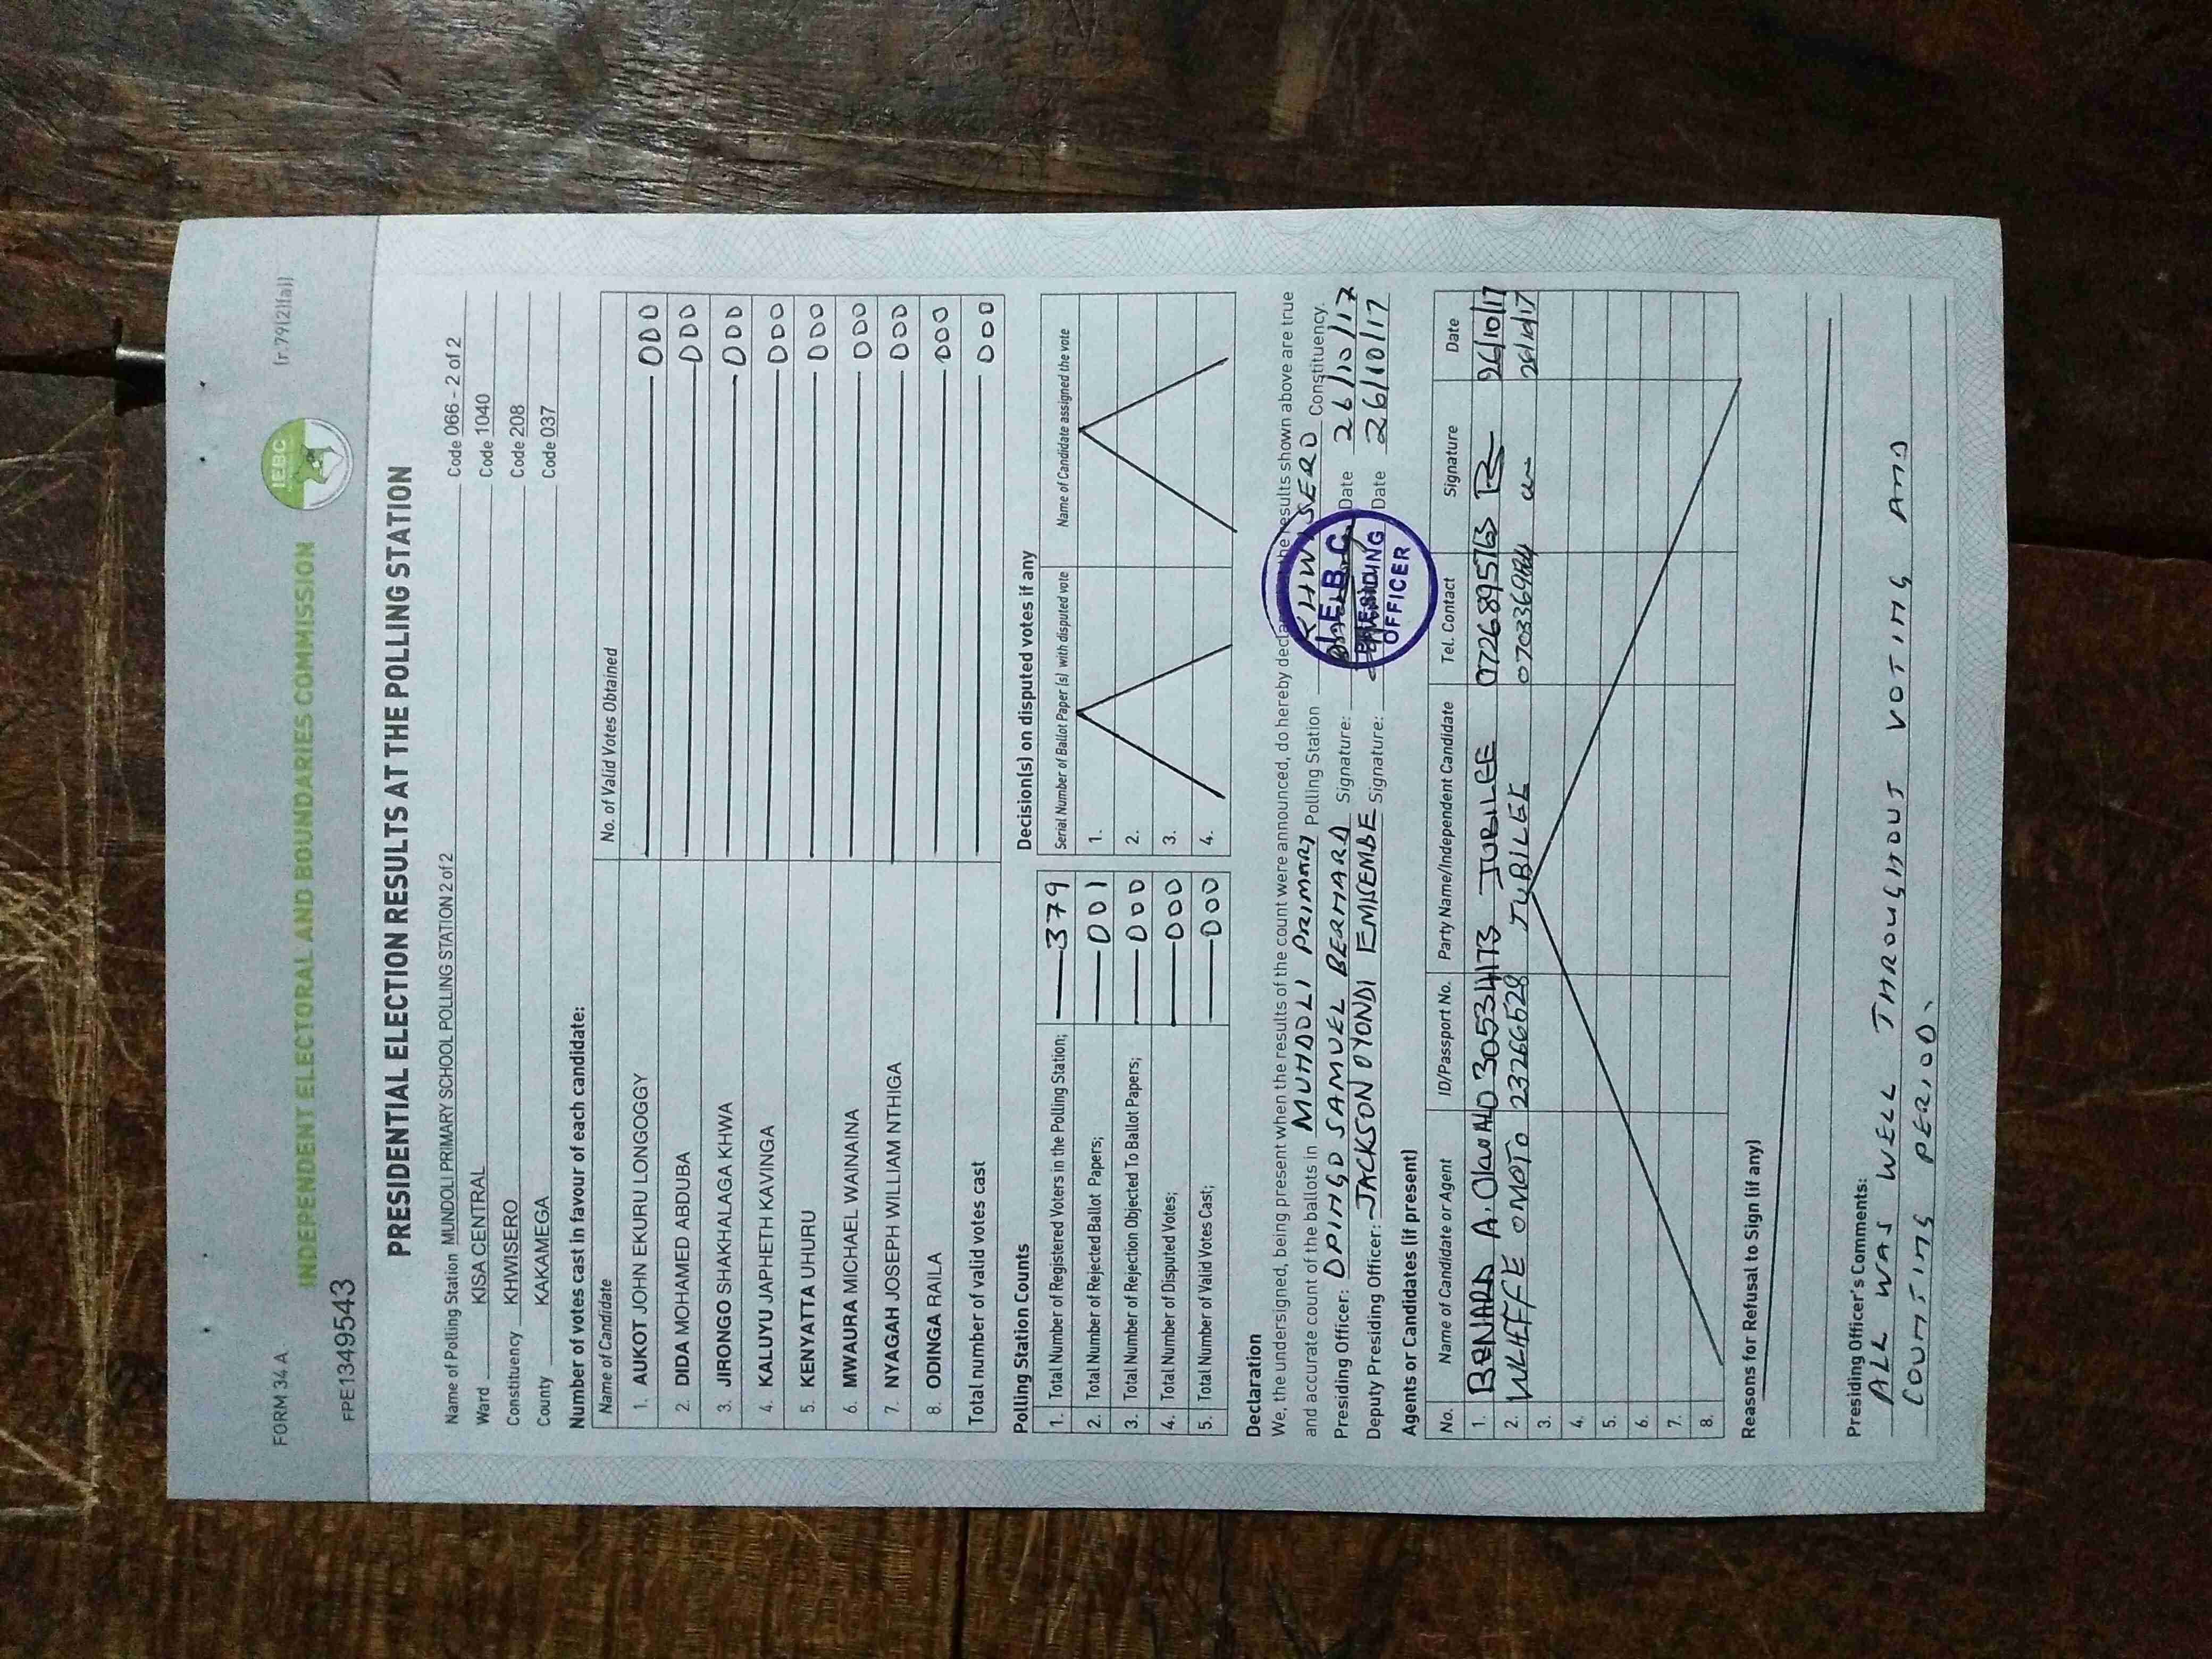 FORM 34 A
(r.79(2)(a))
INDEPENDENT ELECTORAL AND BOUNDARIES COMMISSION
IEBC
FPE1349543
PRESIDENTIAL ELECTION RESULTS AT THE POLLING STATION
Name of Polling Station MUNDOLI PRIMARY SCHOOL POLLING STATION 2 of 2 Code 066 - 2 of 2
Ward KISA CENTRAL Code 1040
Constituency KHWISERO Code 208
County KAKAMEGA Code 037
Number of votes cast in favour of each candidate:
Name of Candidate No. of Valid Votes Obtained
1. AUKOT JOHN EKURU LONGOGGY 000
2. DIDA MOHAMED ABDUBA 000
3. JIRONGO SHAKHALAGA KHWA 000
4. KALUYU JAPHETH KAVINGA 000
5. KENYATTA UHURU 000
6. MWAURA MICHAEL WAINAINA 000
7. NYAGAH JOSEPH WILLIAM NTHIGA 000
8. ODINGA RAILA 000
Total number of valid votes cast 000
Polling Station Counts
1. Total Number of Registered Voters in the Polling Station; 379
2. Total Number of Rejected Ballot Papers; 001
3. Total Number of Rejection Objected To Ballot Papers; 000
4. Total Number of Disputed Votes; 000
5. Total Number of Valid Votes Cast; 000
Decision(s) on disputed votes if any
Serial Number of Ballot Paper (s) with disputed vote Name of Candidate assigned the vote
1.
2.
3.
4.
Declaration
We, the undersigned, being present when the results of the count were announced, do hereby declare the results shown above are true
and accurate count of the ballots in MUNDOLI PRIMARY Polling Station KHWISERO Constituency.
Presiding Officer: OPINGO SAMUEL BERNARD Signature: Date 26/10/17
Deputy Presiding Officer: JACKSON OYONDI EMUSEMBE Signature: Date 26/10/17
I.E.B.C
PRESIDING
OFFICER
Agents or Candidates (if present)
No. Name of Candidate or Agent ID/Passport No. Party Name/Independent Candidate Tel. Contact Signature Date
1. BENARD A. JUBILEE 26/10/17
2. OMOTO 23266528 JUBILEE 26/10/17
3.
4.
5.
6.
7.
8.
Reasons for Refusal to Sign (if any)
Presiding Officer's Comments:
ALL WAS WELL THROUGHOUT VOTING AND
COUNTING PERIOD.